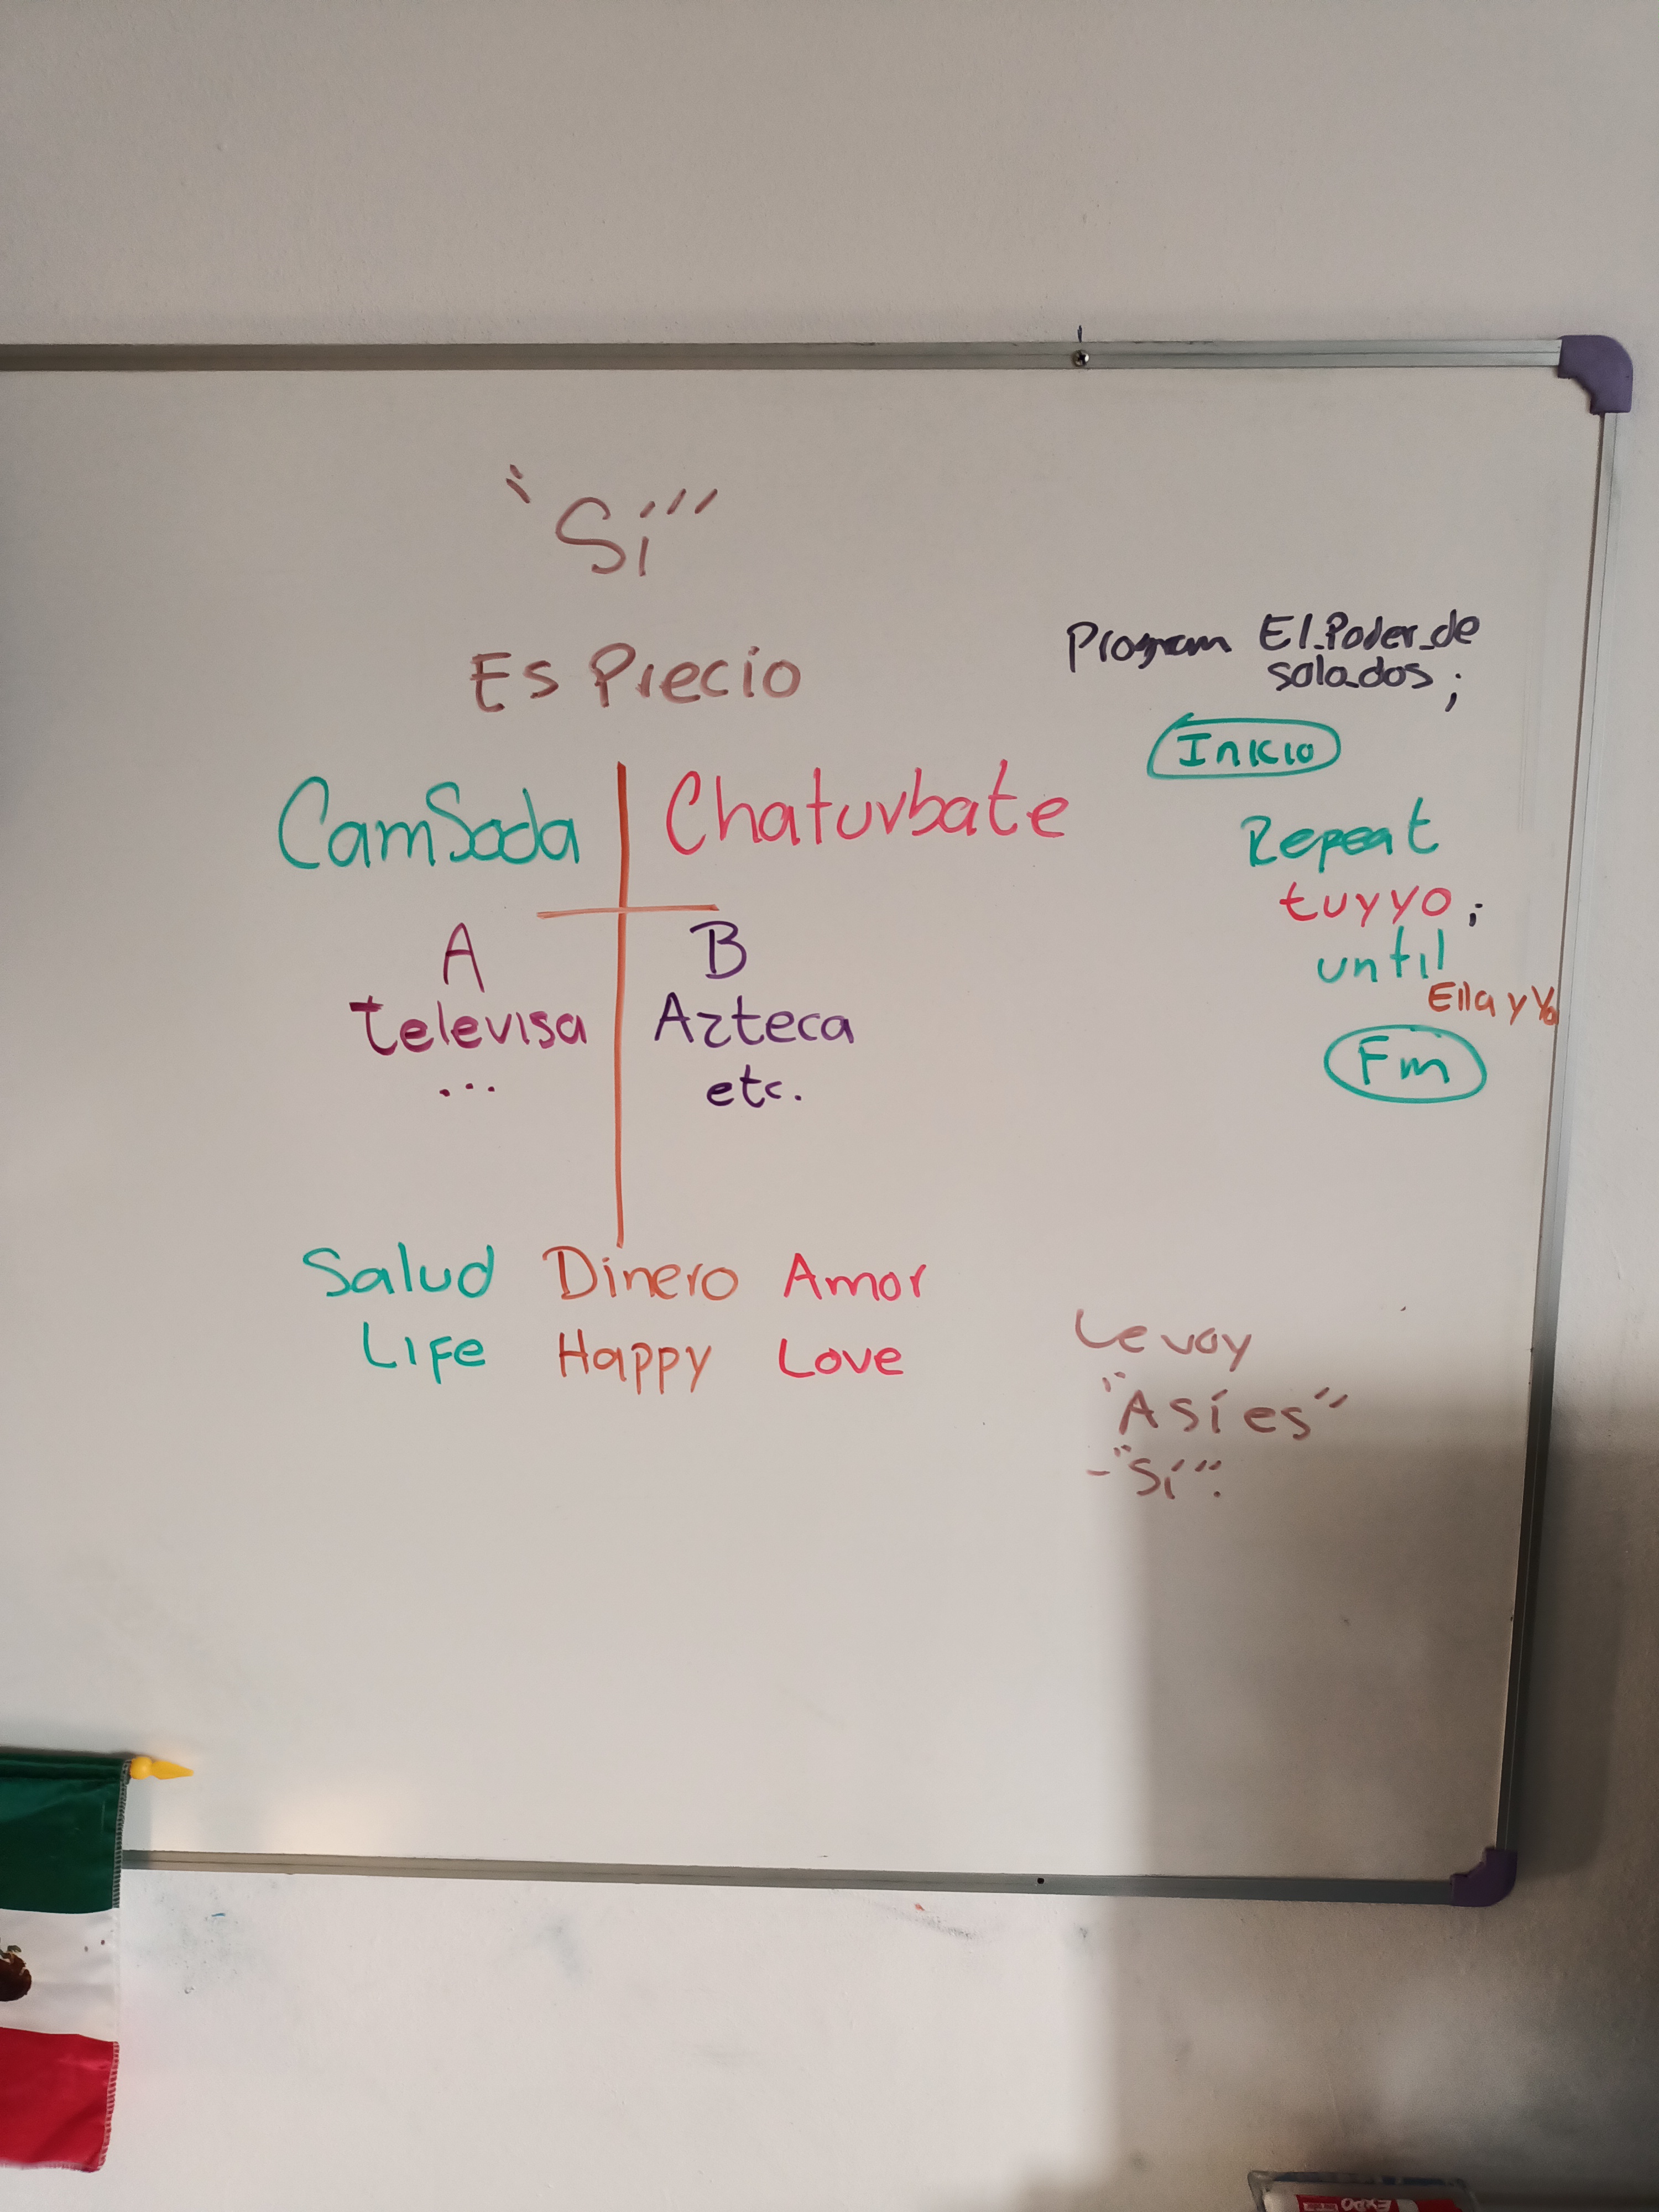 "Sí"
Es Precio
CamSoda Chaturbate
A B
Televisa Azteca
... etc.
Salud Dinero Amor
Life Happy Love
Program El_Poder_de
solados;
Inicio
Repeat
tu y yo;
until
Ella y Yo
Fin
Le voy
"Así es"
-"Sí".
EXPO